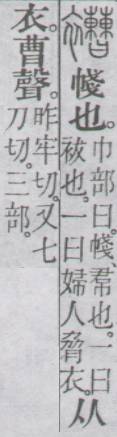 褿 帴也。巾部曰。帴、帬也。一曰
袚也。一曰婦人脅衣。从
衣。曹聲。昨牢切。又七
刀切。三部。